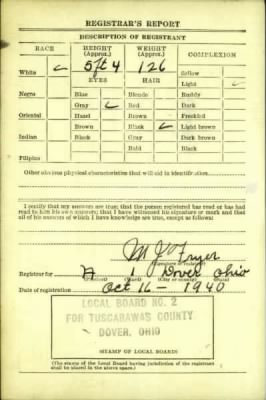 REGISTRAR'S REPORT
DESCRIPTION OF REGISTRANT
RACE HEIGHT (Approx.) WEIGHT (Approx.) COMPLEXION
5ft 4 126
White ✓ Sallow
EYES HAIR Light ✓
Negro Blue Blonde Ruddy
Gray ✓ Red Dark
Oriental Hazel Brown Freckled
Brown Black ✓ Light brown
Indian Black Gray Dark brown
Bald Black
Filipino
Other obvious physical characteristics that will aid in identification
I certify that my answers are true; that the person registered has read or has
had read to him his own answers; that I have witnessed his signature or mark and that
all of his answers of which I have knowledge are true, except as follows:
M J Fryer
(Signature of registrar)
Registrar for 1 Dover Ohio
Date of registration Oct 16 - 1940
LOCAL BOARD NO. 2
FOR TUSCARAWAS COUNTY
DOVER, OHIO
(STAMP OF LOCAL BOARD)
(The stamp of the Local Board having jurisdiction of the registrant
shall be placed in the above space.)